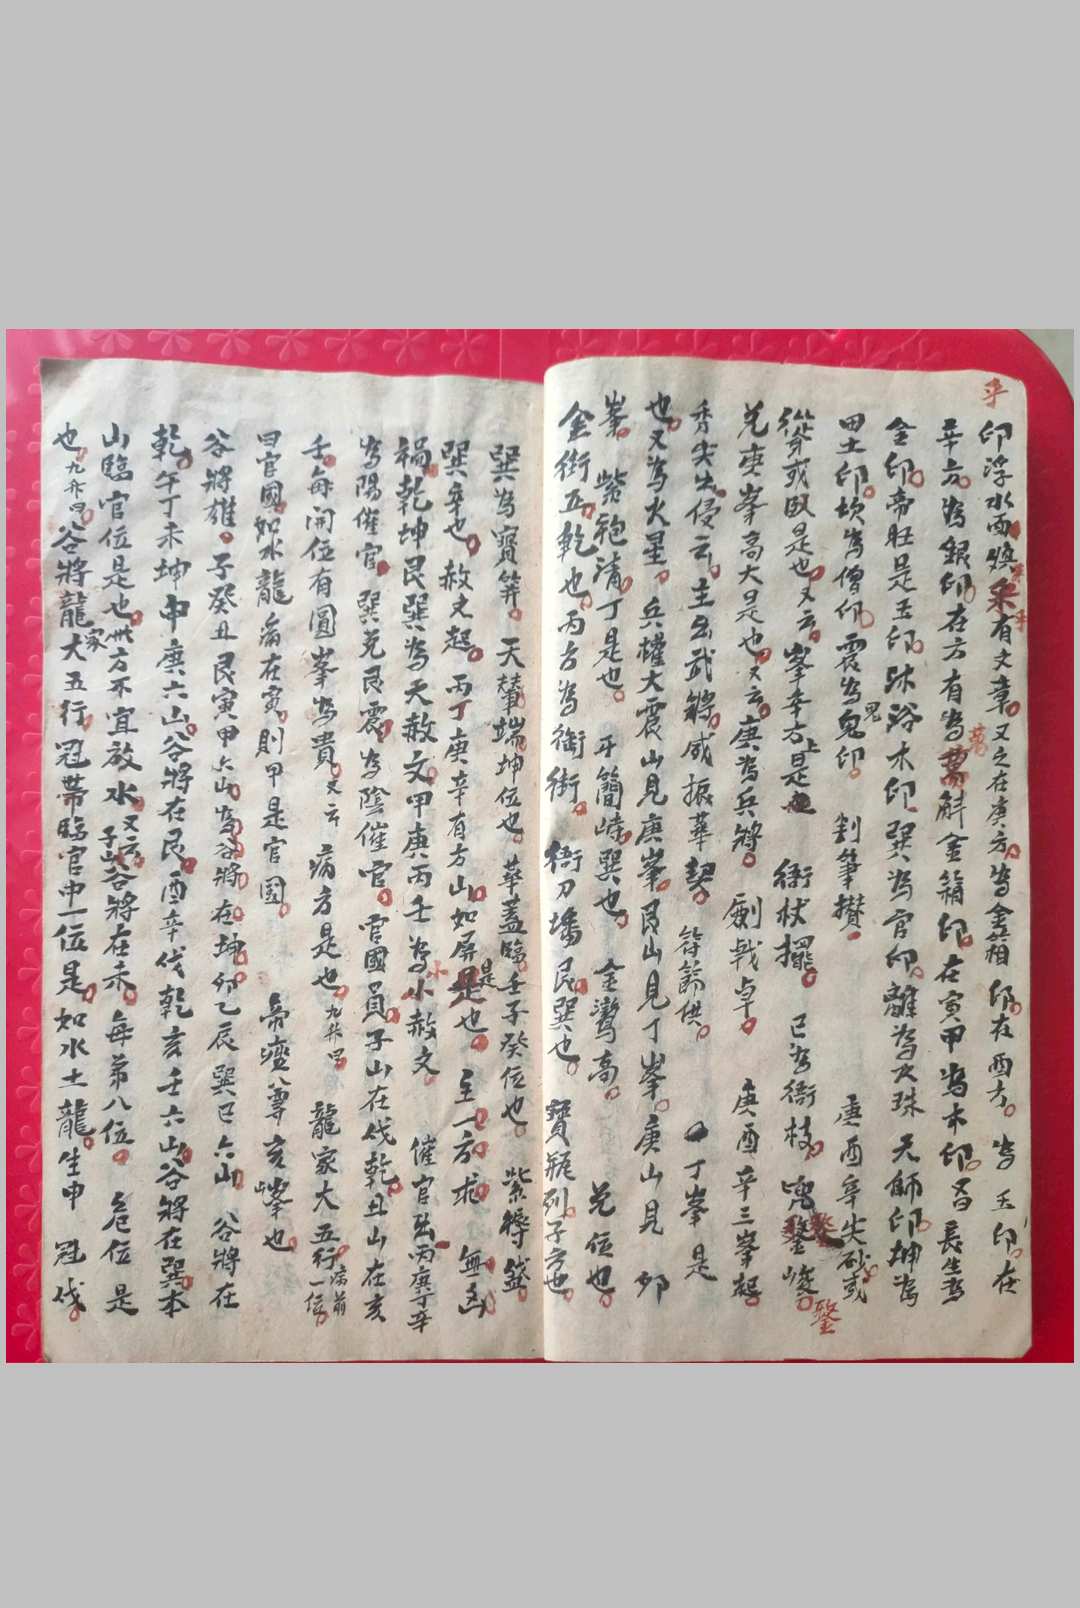 印浮水面煥采有文章又之在庚方為金箱印在酉方為玉印在
辛方為銀印在方有為萬斛金箱印在寅甲為木印長生為
金印帝旺是玉印沐浴木印巽為官印離為火珠天師印坤為
田土印坎為僧印震為鬼印 判筆攢 庚酉辛尖砂或
從或臥是也又云峯辛方上是 衙杖擺 巳為衙枝鑒峻
兌庚峯高大是也又云庚為兵將 劇戟卓 庚酉辛三峯起
秀尖生侵云主出武將威振華契 符節供 丁峯是
也又為火星兵權大震山見庚峯艮山見丁峯庚山見卯
峯 紫袍清丁是也 牙簡峙巽也 金鸞高 兌位也
金街五乾也丙方為衙街 衙刀墦艮巽也 寶瓶列子方也
巽為寶笄 天輦端坤位也 華蓋臨壬子癸位也 紫褥盛
巽辛也 赦文起 丙丁庚辛有方山如屏是也 至一方求 無凶
禍乾坤艮巽為天赦文甲庚丙壬為小赦文 催官出丙庚丁辛
為陽催官巽兌艮震為陰催官官國員子山在伐乾丑山在亥
壬每開位有圓峯為貴又云 病方是也 龍家大五行病前一位
曰官國如水龍病在寅則甲是官國 帝座尊亥峰也
谷將雄子癸丑艮寅甲六山為谷將在坤卯乙辰巽巳六山 谷將在
乾午丁未坤申庚六山谷將在艮酉辛伐乾亥壬六山谷將在巽本
山臨官位是也此方不宜放水又云子山谷將在未每第八位 危位是
也谷將龍家大五行冠帶臨官中一位是如水土龍生申 冠伐